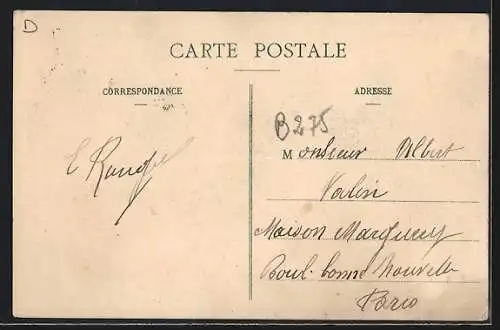 D
CARTE POSTALE
CORRESPONDANCE
ADRESSE
B275
Monsieur Albert
Valin
Maison Marguery
Boul. bonne nouvelle
Paris
E